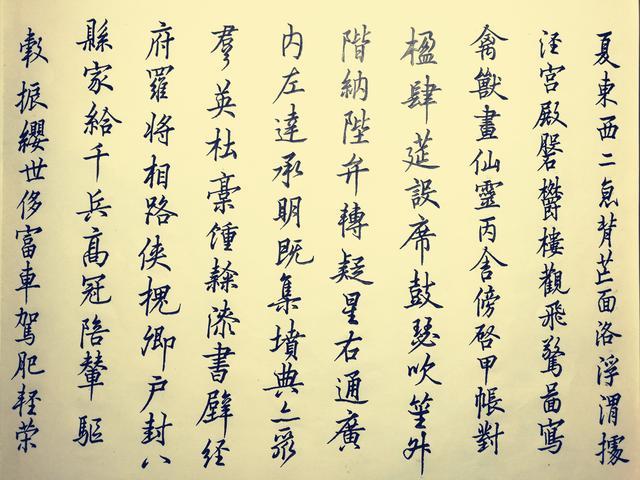 夏東西二亰背芒面洛浮渭據
涇宮殿磐欝樓觀飛驚啚寫
禽獸畫仙靈丙舍傍啓甲帳對
楹肆莚設席鼓瑟吹笙升
階納陛弁轉疑星右通廣
内左達承明既集墳典亦聚
羣英杜稾鍾隸漆書壁経
府羅将相路俠槐卿户封八
縣家給千兵高冠陪輦驅
轂振纓世侈富車駕肥軽荣